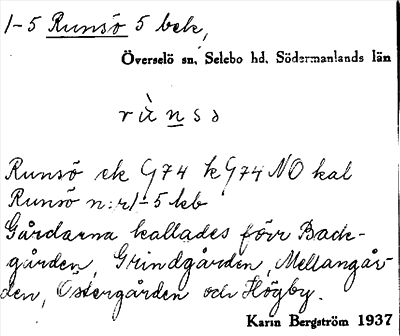 1-5 Runsö 5 bek,
Överselö sn, Selebo hd, Södermanlands län
rùnsɔ
Runsö ek G74 k G74 NO kal
Runsö n:r 1-5 kb
Gårdarna kallades förr Back-
gården, Grindgården, Mellangår-
den, Östergården och Högby.
Karin Bergström 1937